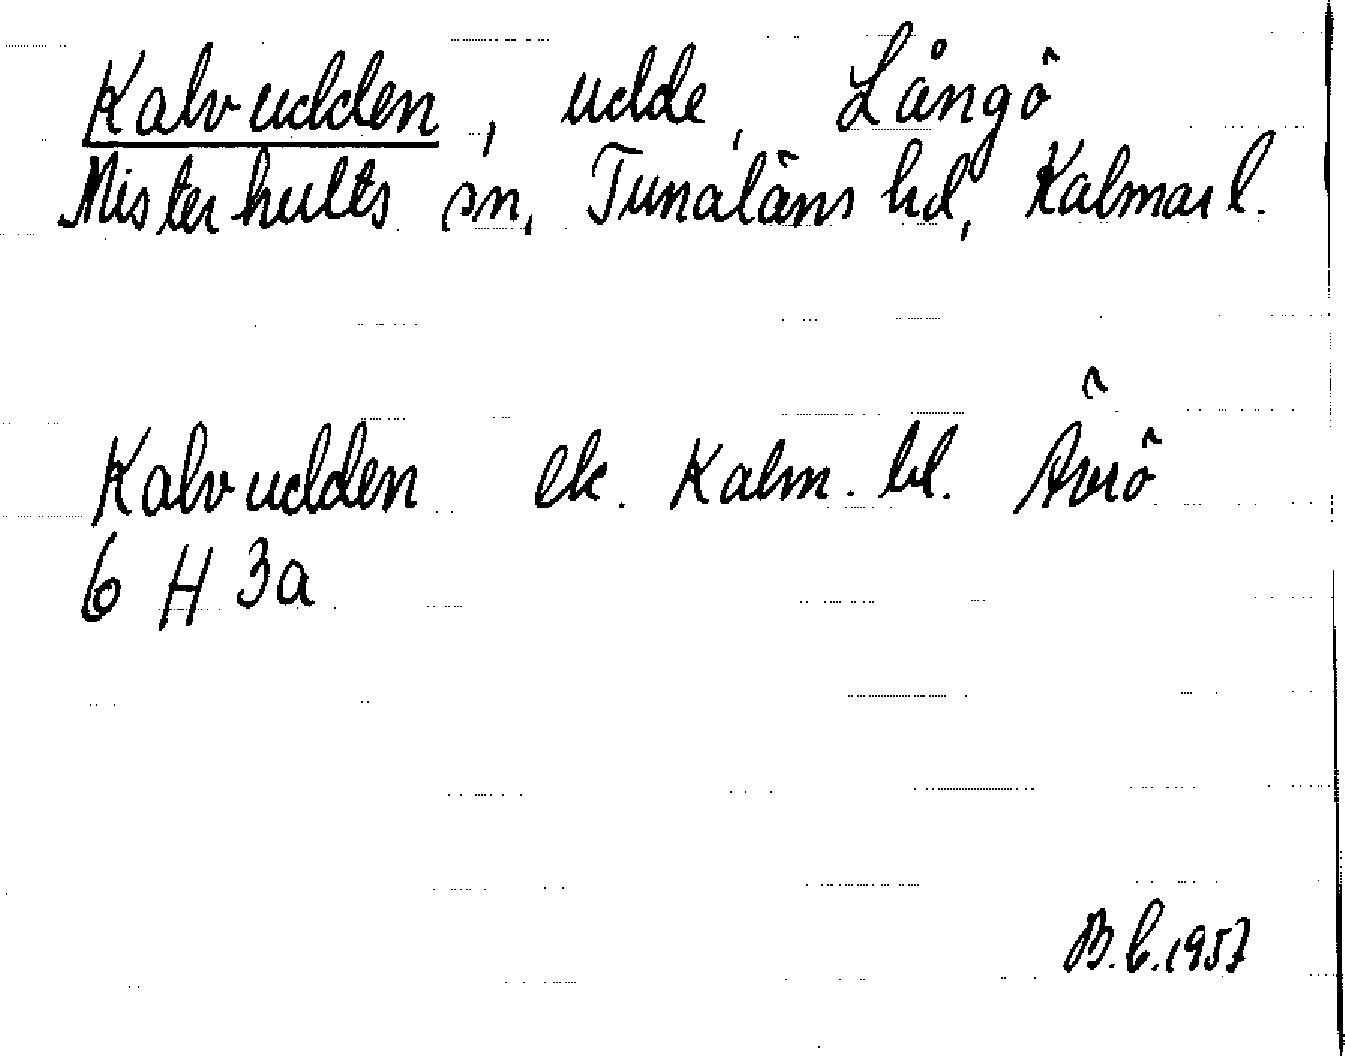 Kalvudden, udde, Långö
Misterhults sn, Tunaläns hd, Kalmar l.
Kalvudden ek. Kalm. bl. Ävrö
6 H 3a
B.C.1957